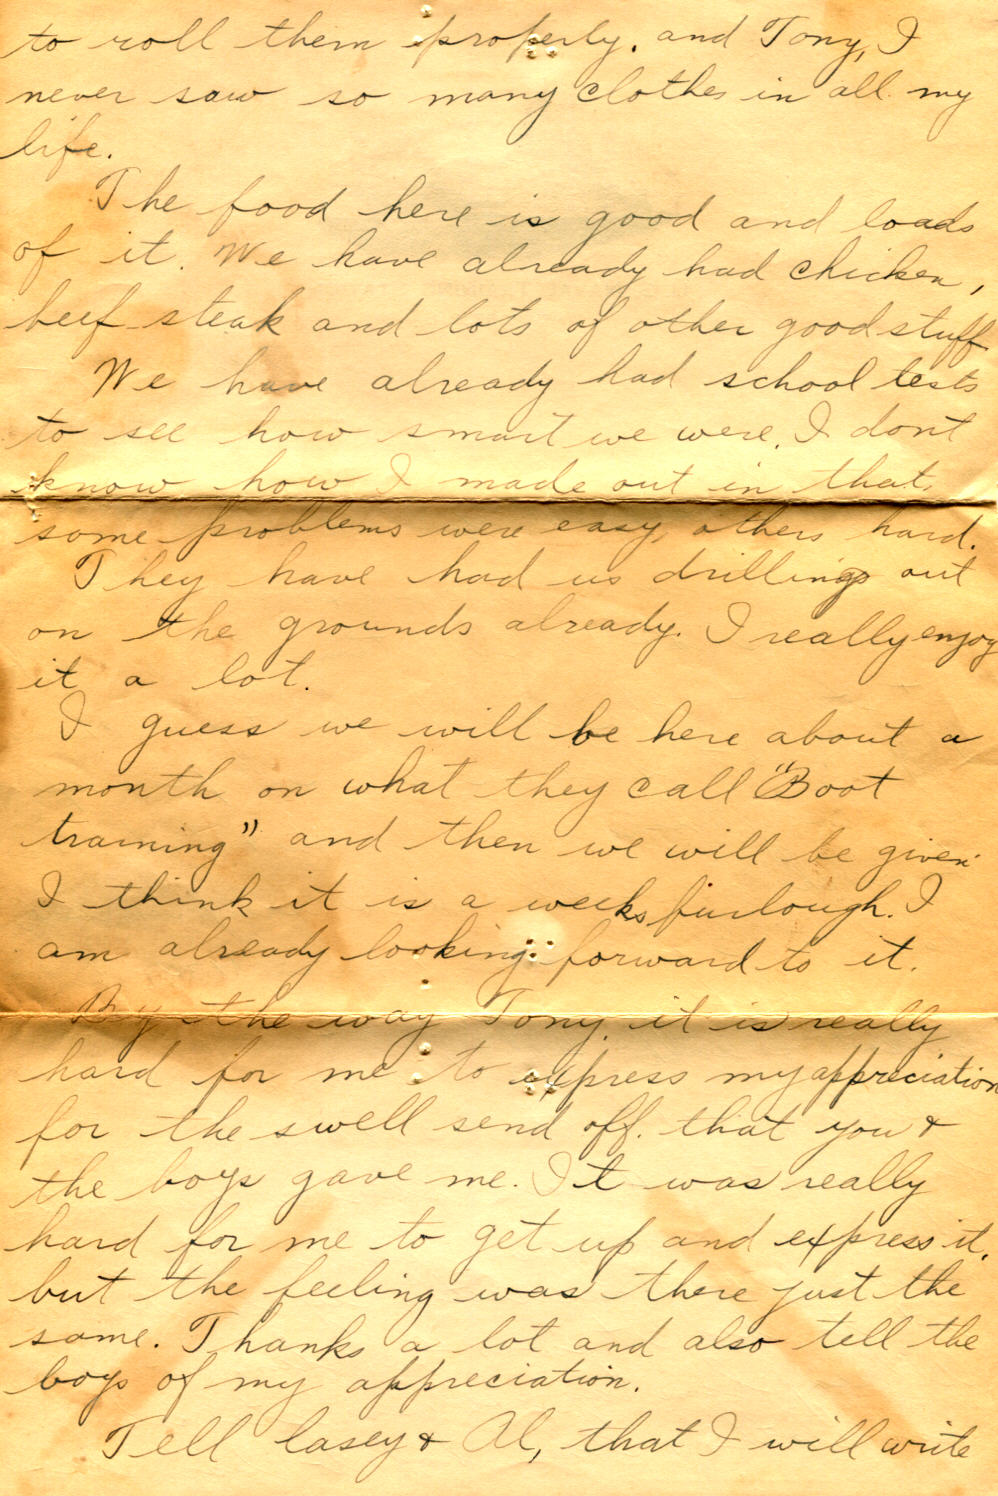 to roll them properly. and Tony, I
never saw so many clothes in all my
life.
The food here is good and loads
of it. We have already had chicken,
beef steak and lots of other good stuff
We have already had school tests
to see how smart we were. I dont
know how I made out in that,
some problems were easy, others hard.
They have had us drillings out
on the grounds already. I really enjoy
it a lot.
I guess we will be here about a
month on what they call "Boot
training" and then we will be given
I think it is a weeks furlough. I
am already looking forward to it.
By the way Tony, it is really
hard for me to express my appreciation
for the swell send off. that you &
the boys gave me. It was really
hard for me to get up and express it,
but the feeling was there just the
same. Thanks a lot and also tell the
boys of my appreciation.
Tell Casey & Al, that I will write